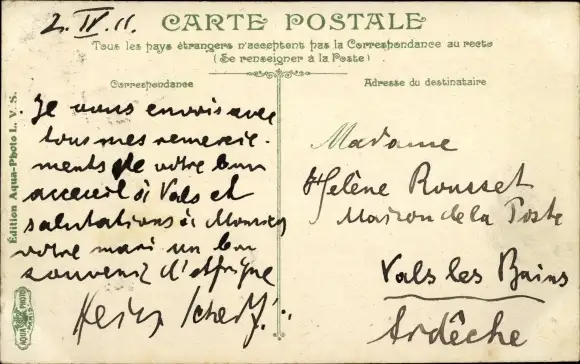 2. IV. 11.
CARTE POSTALE
Tous les pays étrangers n'acceptent pas la Correspondance au recto
(Se renseigner à la Poste)
Correspondance
Je vous envois avec
tous mes remercie-
ments de votre bon
acceuil à Vals et
salutations à Monsieur
votre mari un bon
souvenir d'Afrique
Adresse du destinataire
Madame
Hélène Rousset
Maison de la Poste
Vals les Bains
Ardèche
Édition Aqua-Photo L. V. S.
AQUA PHOTO
PARIS